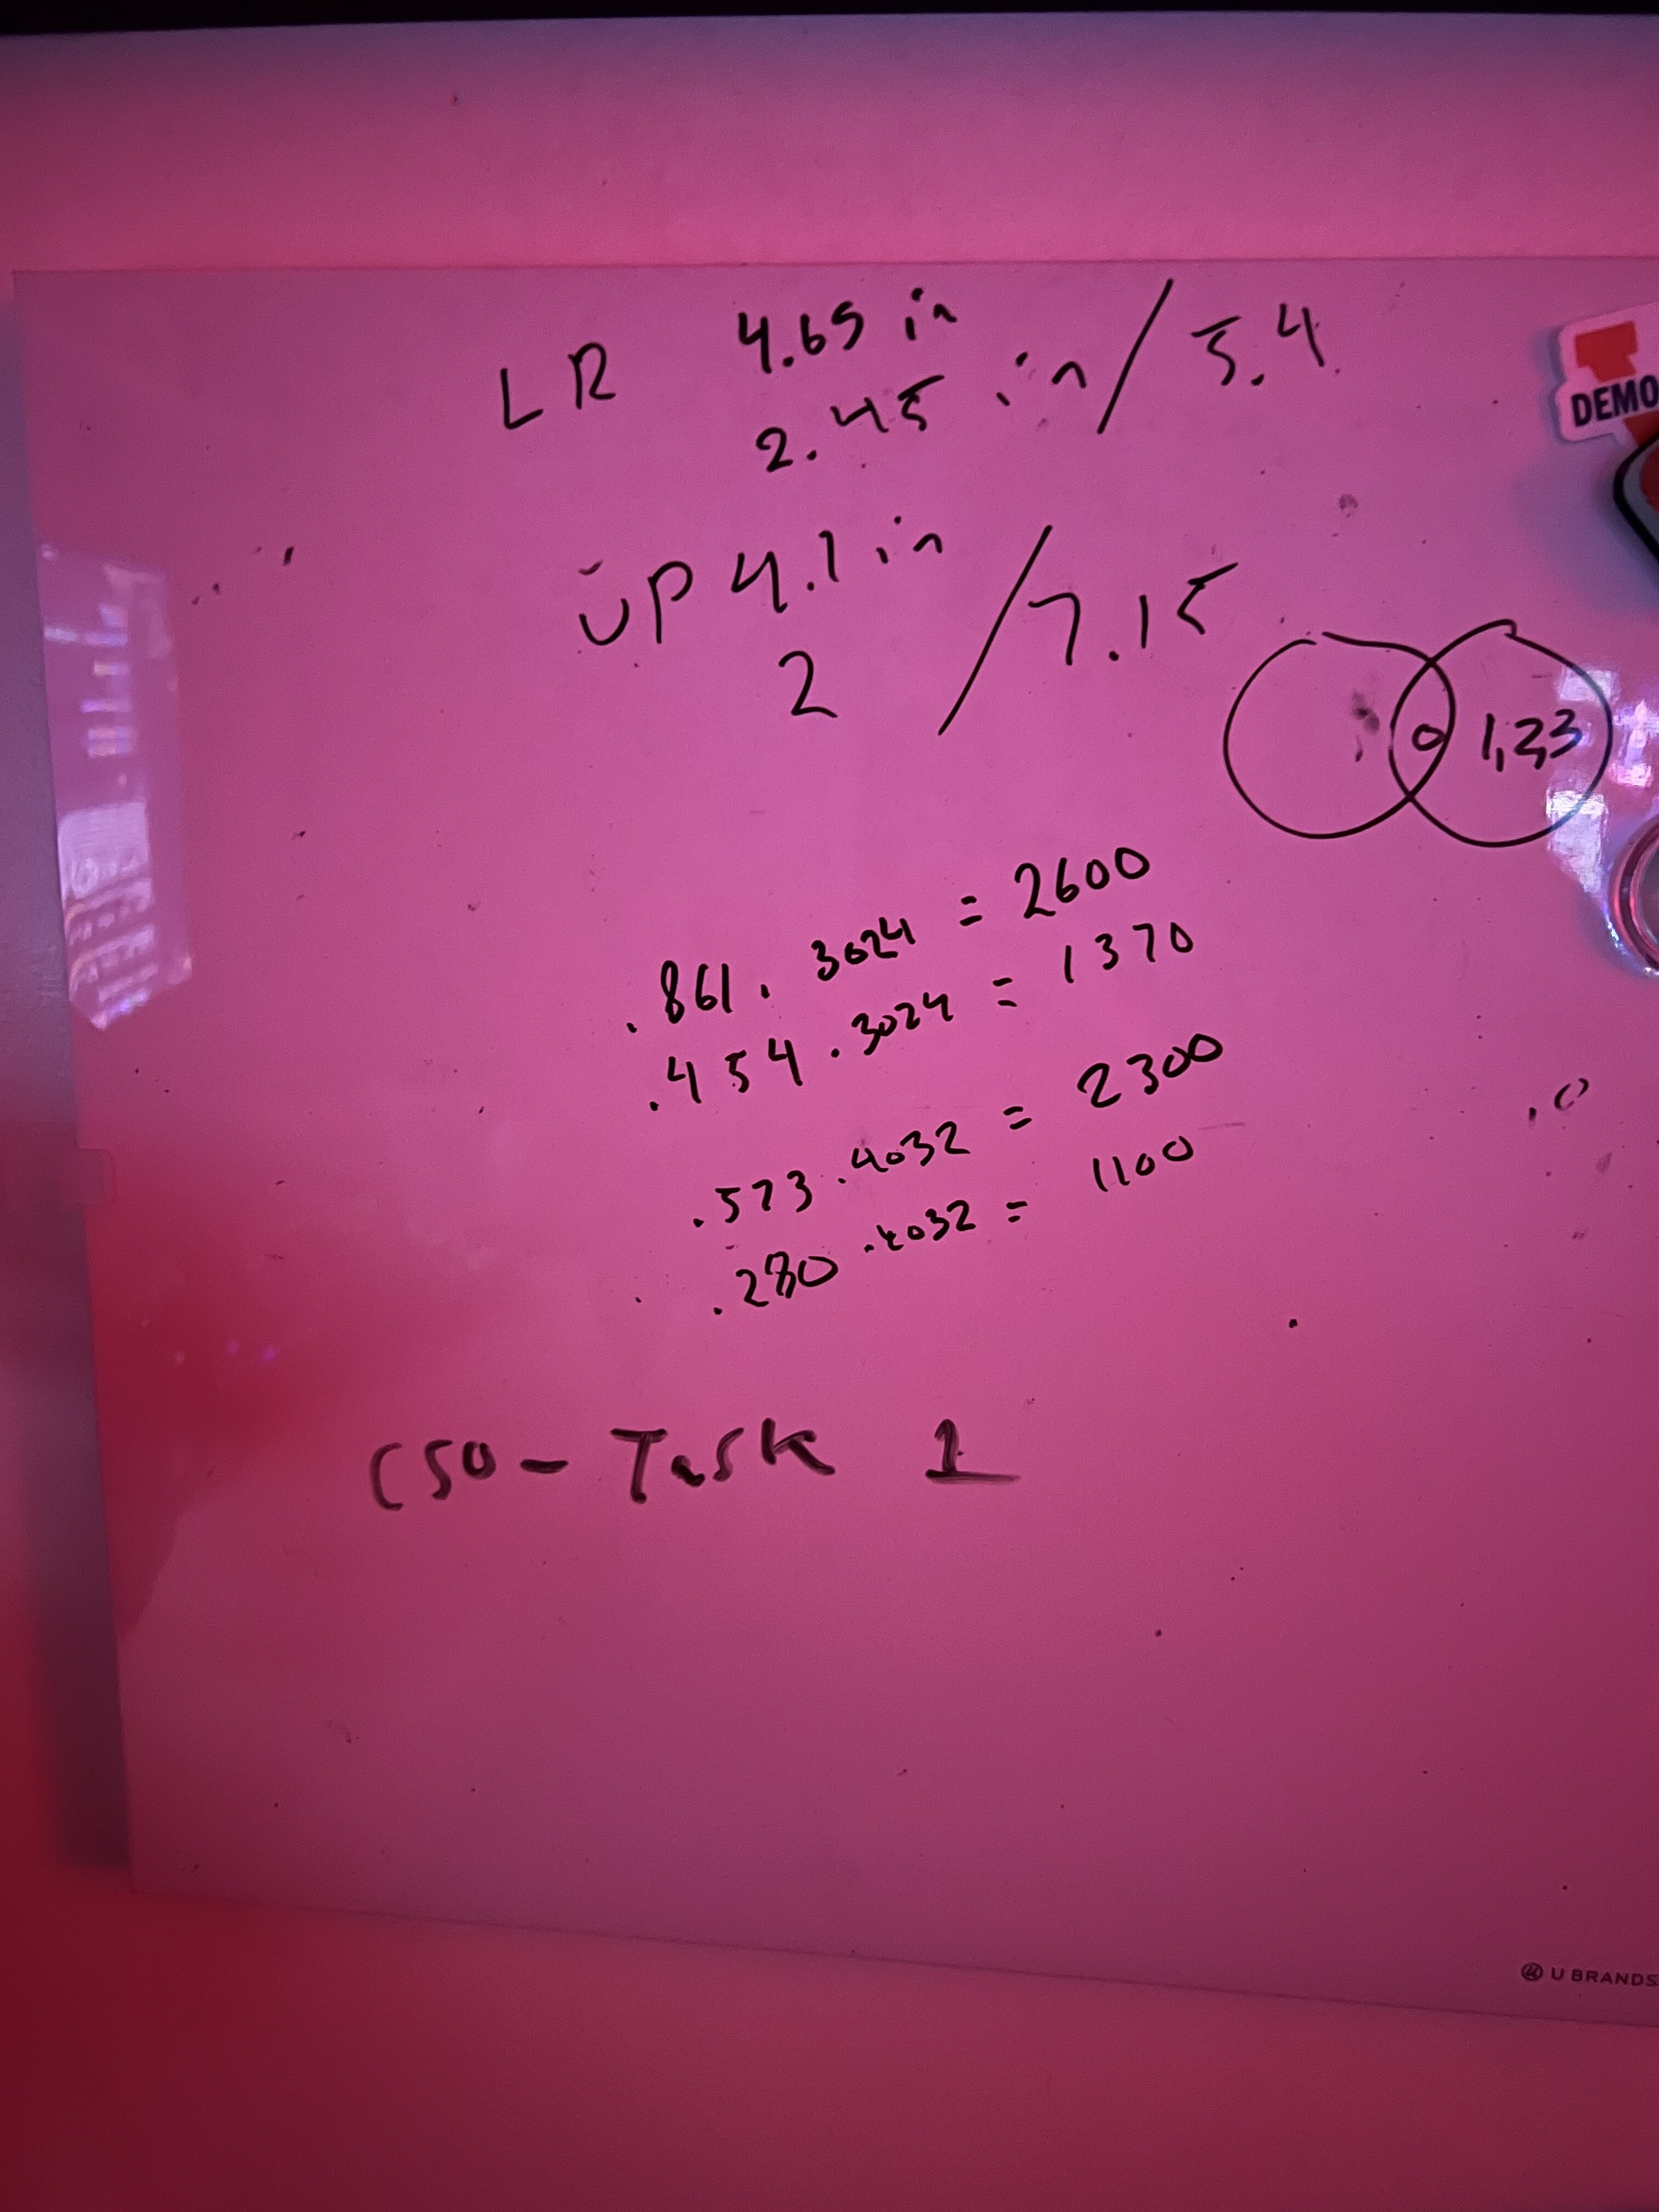 LR 4.65 in
2.45 in / 5.4
UP 4.1 in
2 / 7.15
0 1,23
.861 . 3024 = 2600
.454 . 3024 = 1370
.573 . 4032 = 2300
.280 . 4032 = 1100
CSO - Task 1
DEMO
U BRANDS